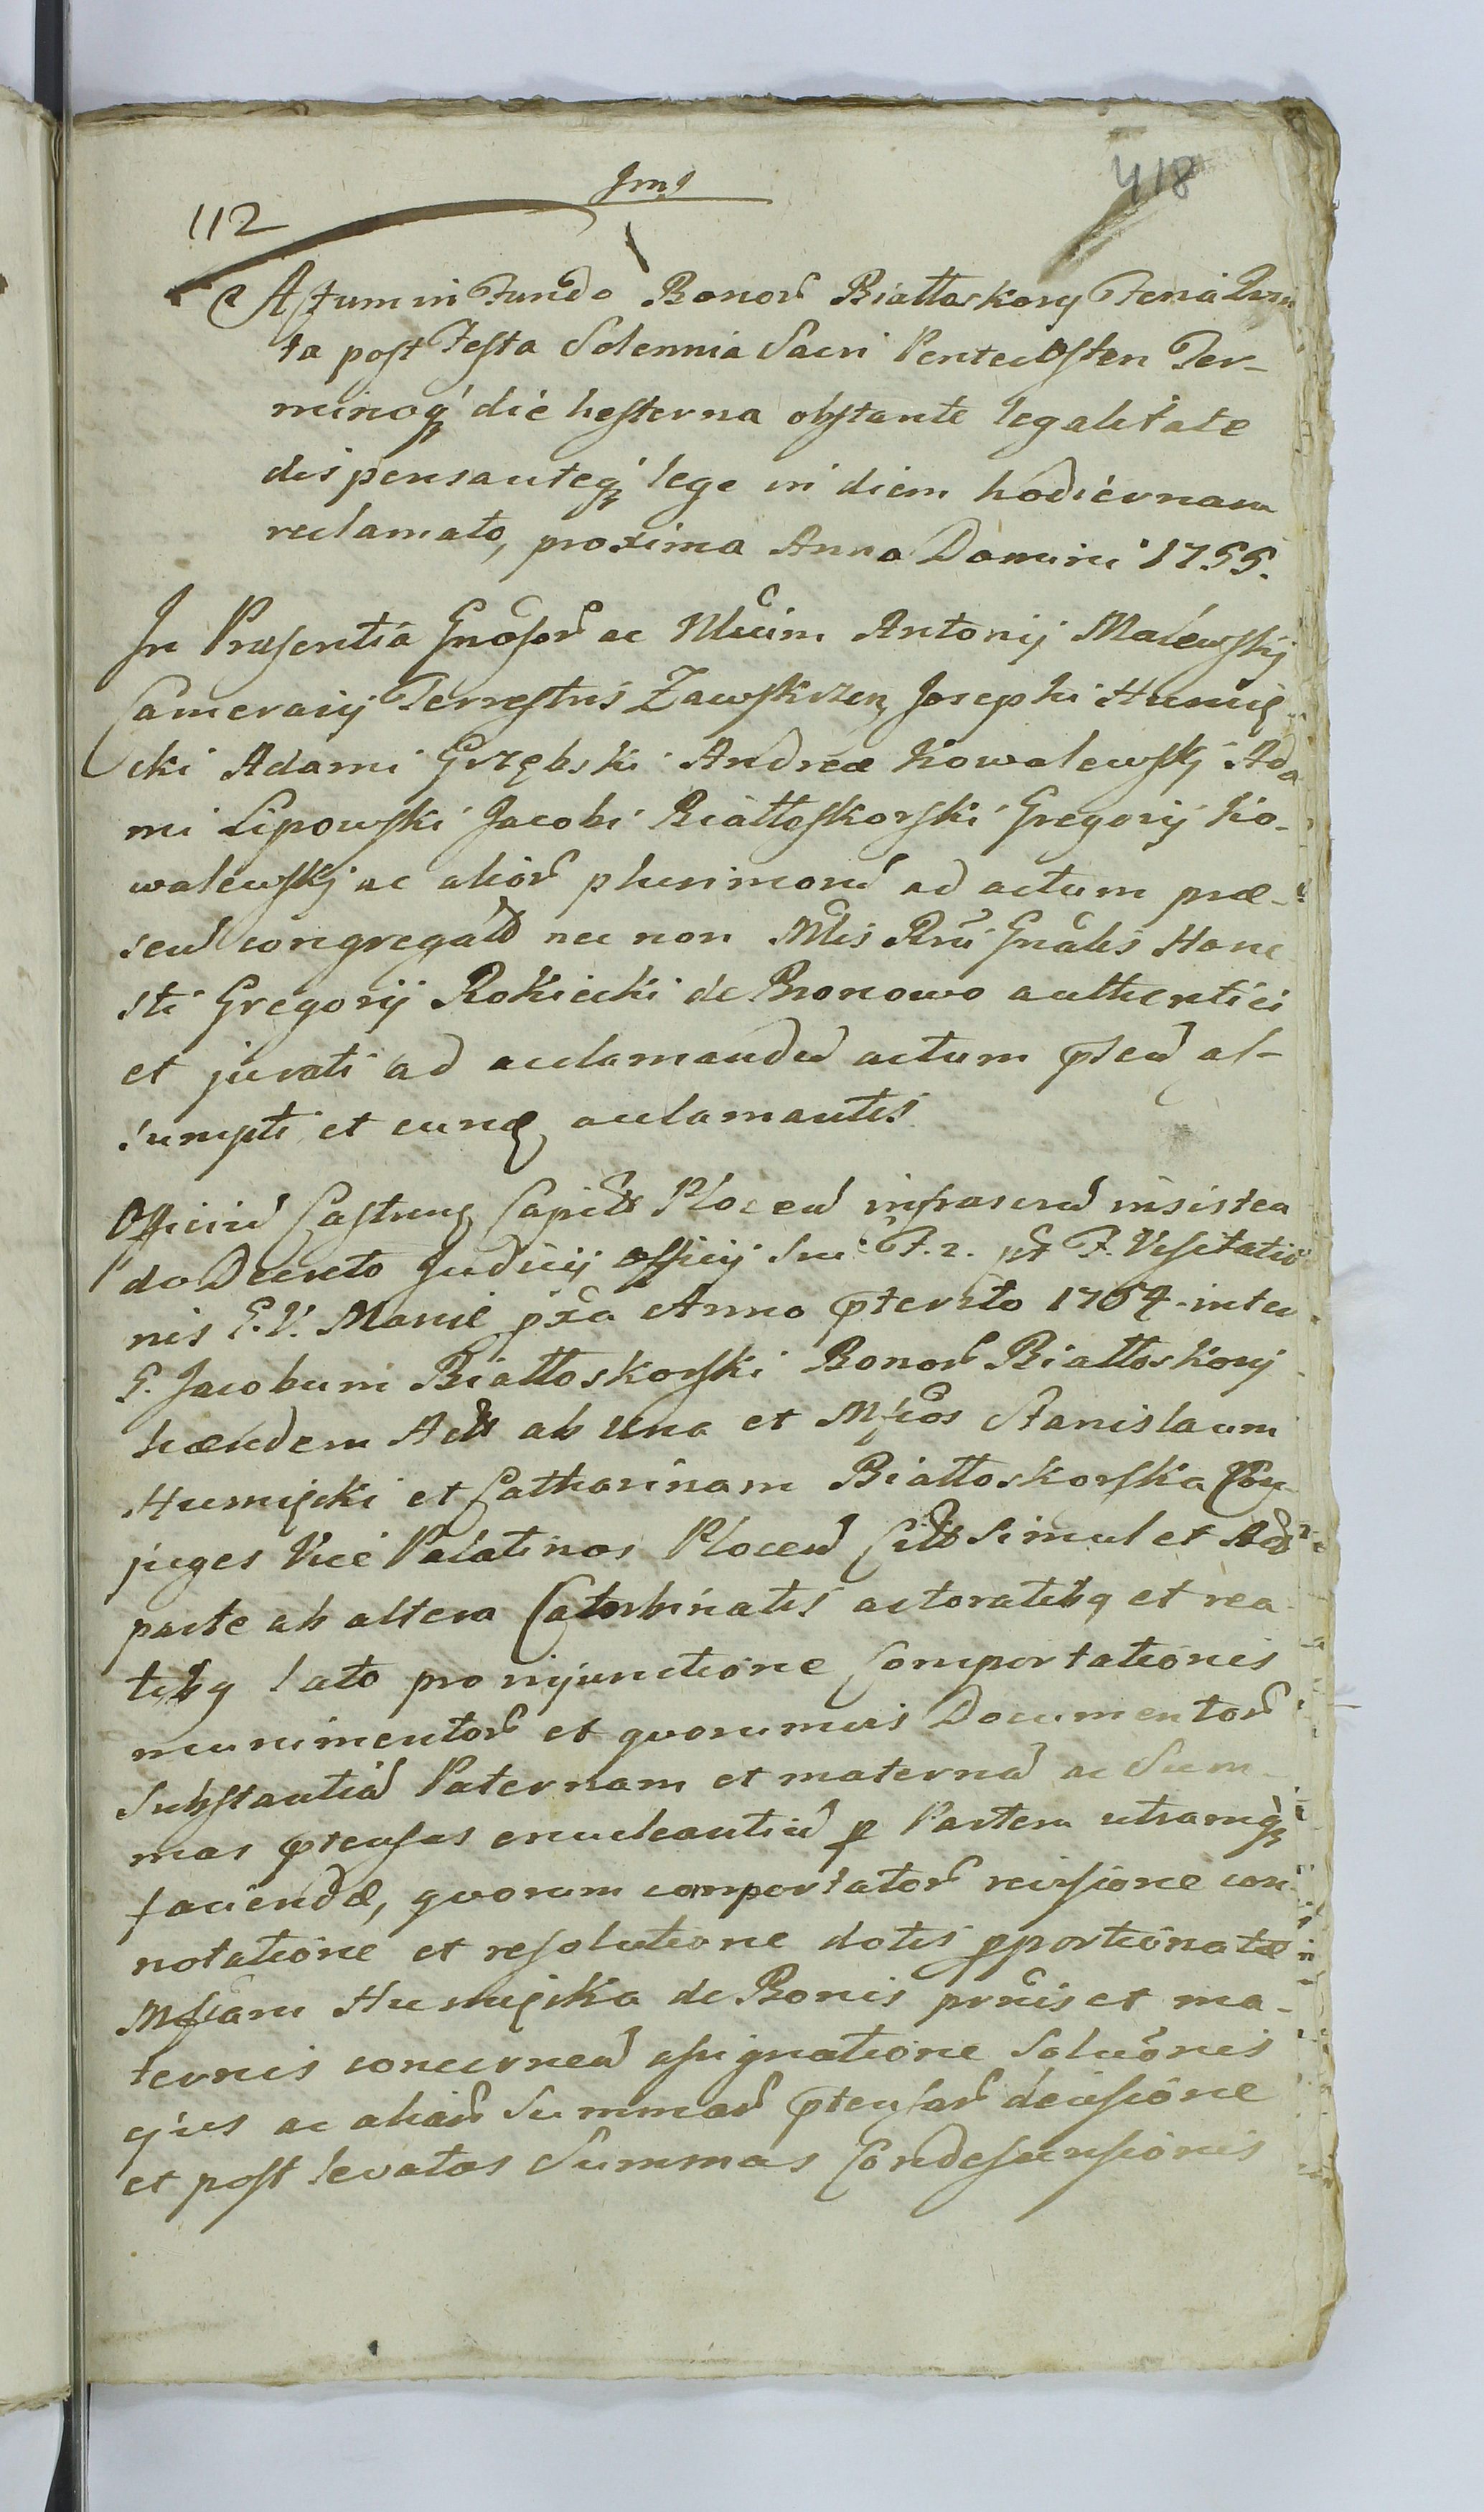 Jms
418
112
Actum in Fundo Bonor Białłoskory Feria Quin
ta post Festa Solennia Sacri Pentecosten Ter-
minoq die hesterna obstante legalitate
dispensanteq lege in diem hodiernam
reclamato, proxima Anno Domini 1755.
In Præsentia Gnosor ac Antonij Malewskij
Camerarij Terrestris Zawskrzen Josephi Humię
cki Adami Grzębski Andreæ Kowalewskj Ada
mi Lipowski Jacobi Białłoskorski Gregorij Ko-
walewskj ac alior plurimoru ad actum præ-
sen congregat nec non Mlis Rni Gnalis Hone
sti Gregorij Rokiecki de Bronowo authentici
et jurati ad acclamandu actum pseu as-
sumpti et eunq acclamantis
Officiu Castren Capit Plocen infrascru insisten
do Decreto Judicij Officij Sui F. 2. pt F. Visitatio
nis B.V. Mariæ pxa Anno pterito 1754 inter
G. Jacobum Białłoskorski Bonor Białłoskory
hæredem Act ab una et Mfcos Stanislaum
Humięcki et Catharinam Białłoskorska Con
juges Vice Palatinos Plocen Citt Simul et Act
parte ab altera Caturbinatis actoratibq et rea
tibq lato pro injunctione Comportationis
munimentor et quorumvis Documentor
Substantia Paternam et materna ac Sum-
mas ptensas enucleantiu p Partem utramq
faciendæ, quorum comportator revisione con
notatione et resolutione dotis pportionatæ
Mfcam Humięcka de Bonis prnis et ma-
ternis concernen assignatione Soluonis
ejus ac aliar Summar ptensar decisione
et post levatas Summas Condescensionis